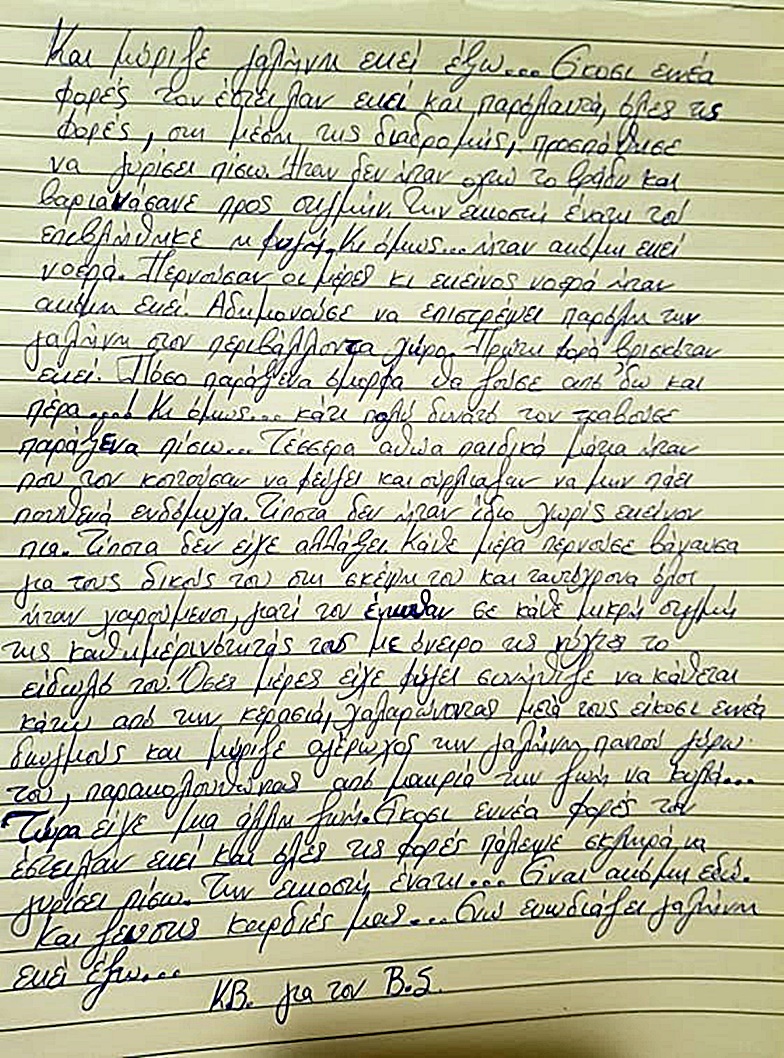 Και μύριζε γαλήνη εκεί έξω... Είκοσι εννέα
φορές τον έστειλαν εκεί και παρόλαυτά, όλες τις
φορές, στη μέση της διαδρομής, προσπάθησε
να γυρίσει πίσω. Ήταν δεν ήταν το βράδυ και
προς στιγμήν. Την εικοστή ένατη του
επιβλήθηκε η φυγή. Κι όμως... ήταν ακόμη εκεί
νοερά. Περνούσαν οι μέρες κι εκείνος νοερά ήταν
ακόμη εκεί. Αδημονούσε να επιστρέψει παρόλη την
γαλήνη στον περιβάλλοντα χώρο. Πρώτη φορά βρισκόταν
εκεί. Πόσο παράξενα όμορφα θα ζούσε από δω και
πέρα.... Κι όμως... κάτι πολύ δυνατό τον τραβούσε
παράξενα πίσω... Τέσσερα αθώα παιδικά μάτια ήταν
που τον κοιτούσαν να φεύγει και ούρλιαζαν να μην πάει
πουθενά ενδόμυχα. Τίποτα δεν ήταν ίδιο χωρίς εκείνον
πια. Τίποτα δεν είχε αλλάξει. Κάθε μέρα περνούσε βάναυσα
για τους δικούς του στη σκέψη του και ταυτόχρονα όλοι
ήταν χαρούμενοι, γιατί τον έβλεπαν σε κάθε μικρή στιγμή
της καθημερινότητάς τους με όνειρο της νύχτας το
είδωλό του. Όσες μέρες είχε φύγει συνήθιζε να κάθεται
κάτω από την κερασιά, χαλαρώνοντας μετά τους είκοσι εννέα
διωγμούς και μύριζε αγέρωχος την γαλήνη παντού γύρω
του, παρακολουθώντας από μακριά την ζωή να κυλά...
Τώρα είχε μια άλλη ζωή. Είκοσι εννέα φορές τον
έστειλαν εκεί και όλες τις φορές πάλεψε σκληρά να
γυρίσει πίσω. Την εικοστή ένατη... Είναι ακόμη εδώ.
Και ζει στις καρδιές μας... Ενώ ευωδιάζει γαλήνη
εκεί έξω...
Κ.Β. για τον B.S.